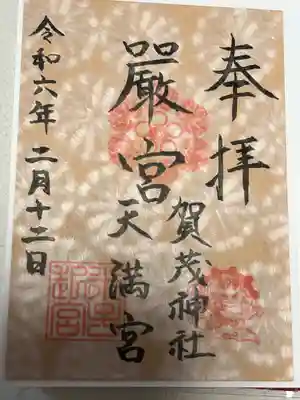 奉拝
厳宮
賀茂神社
天満宮
令和六年二月十二日